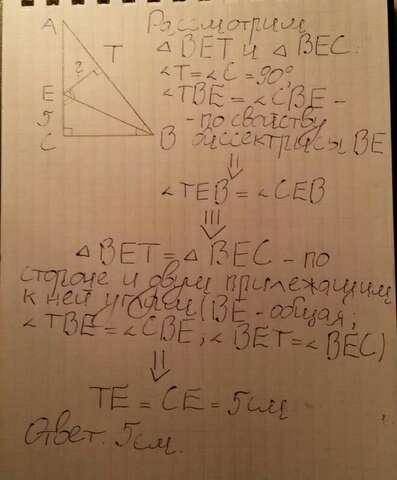 A
Рассмотрим
△BET и △BEC:
?
T
∠T=∠C=90°,
E
∠TBE=∠CBE -
5
- по свойству
C
B
биссектрисы BE
⇓
∠TEB=∠CEB
⇓
△BET=△BEC - по
стороне и двум прилежащим
к ней углам (BE - общая;
∠TBE=∠CBE; ∠BET=∠BEC)
⇓
TE=CE=5см
Ответ: 5см.